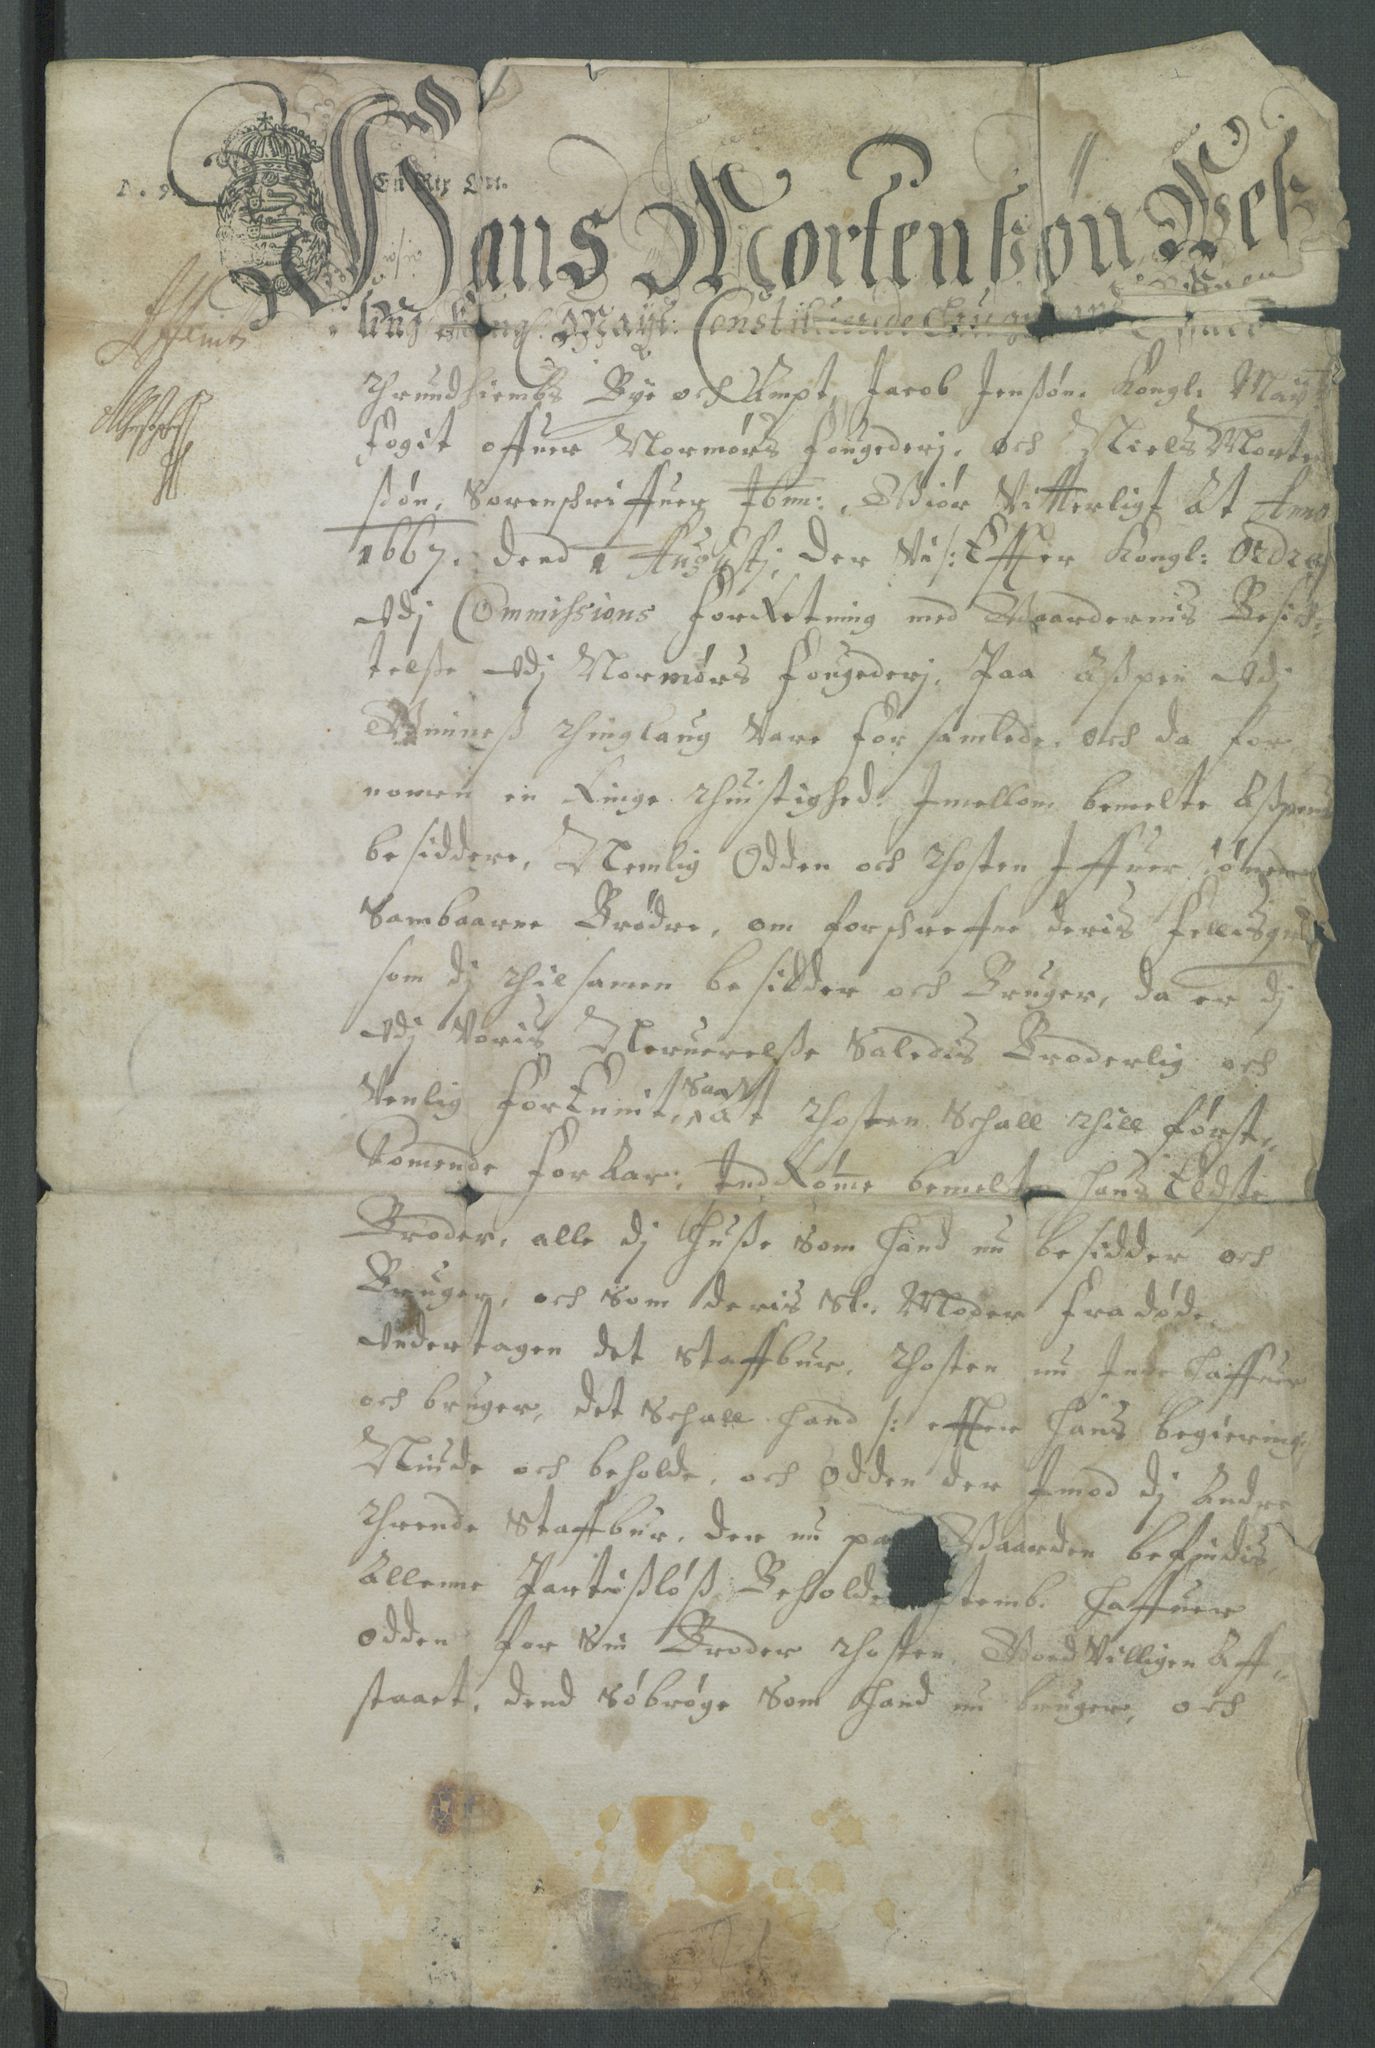 N. 9.
En Rix Ort.
Hans Mortensøn Wes
ling Kongl: Mayt: Constituerede
Thrundhiembs Bye och Ampt, Jacob Jensøn. Kongl: Mayt:
fogit offuer Normørs fougederj, och Niels Morten
søn, Sorenschriffuer Ibm:, Giør Vitterligt at Anno
1667. dend 1 Augustj, der Vi /: Effter Kongl: Ordre
udj Commissions forretning med Waardernis Besich:
telsse udj Normørs fougederj, Paa Asspen udj
thinglaug Vare forsamlede, och da for
nomen en Ringe thuistighed: Jmellom bemelte Asspens
besiddere, Nemlig Odden och thosten Iffuer sønner
Sambaarne Brødre, om forschreffne deris fellisgrd
som dj thilsamen besidder och Bruger, da er dj
udj Voris Neruerelsse Saledis Broderlig och
Venlig forEenit, Saa at thosten Schall thill først:
komende forAar, IndRøme bemelte hans Eldste
Broder, alle dj Husse som hand nu besidder och
Bruger, och som deris Sl: Moder fradøde,
undertagen det Staffbur, thosten nu Inde haffuer
och bruger, det Schall hand /: effter hans begiering
Niude och beholde, och Odden der Jmod dj Andre
thrende Staffbur, der nu paa Gaarden befindis,
Allenne Partisløss Beholde Jtemb. haffuer
Odden for Sin Broder thosten, Goed Villigen Aff,
staaet, dend Søbrøge Som hand nu bruger, och